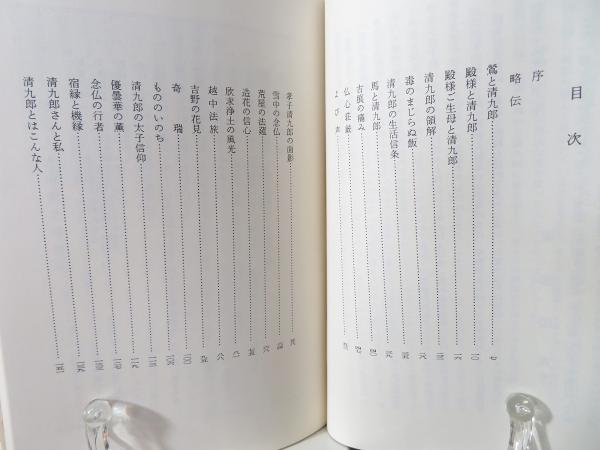 目次
序
略伝
鶯と清九郎
殿様と清九郎
殿様ご生母と清九郎
清九郎の領解
毒のまじらぬ飯
清九郎の生活信条
馬と清九郎
古痕の痛み
仏心荘厳
よび声
孝子清九郎の面影
雪中の念仏
荒屋の法莚
造花の信心
欣求浄土の風光
越中法旅
吉野の花見
奇瑞
もののいのち
清九郎の太子信仰
優曇華の薫
念仏の行者
宿縁と機縁
清九郎さんと私
清九郎とはこんな人